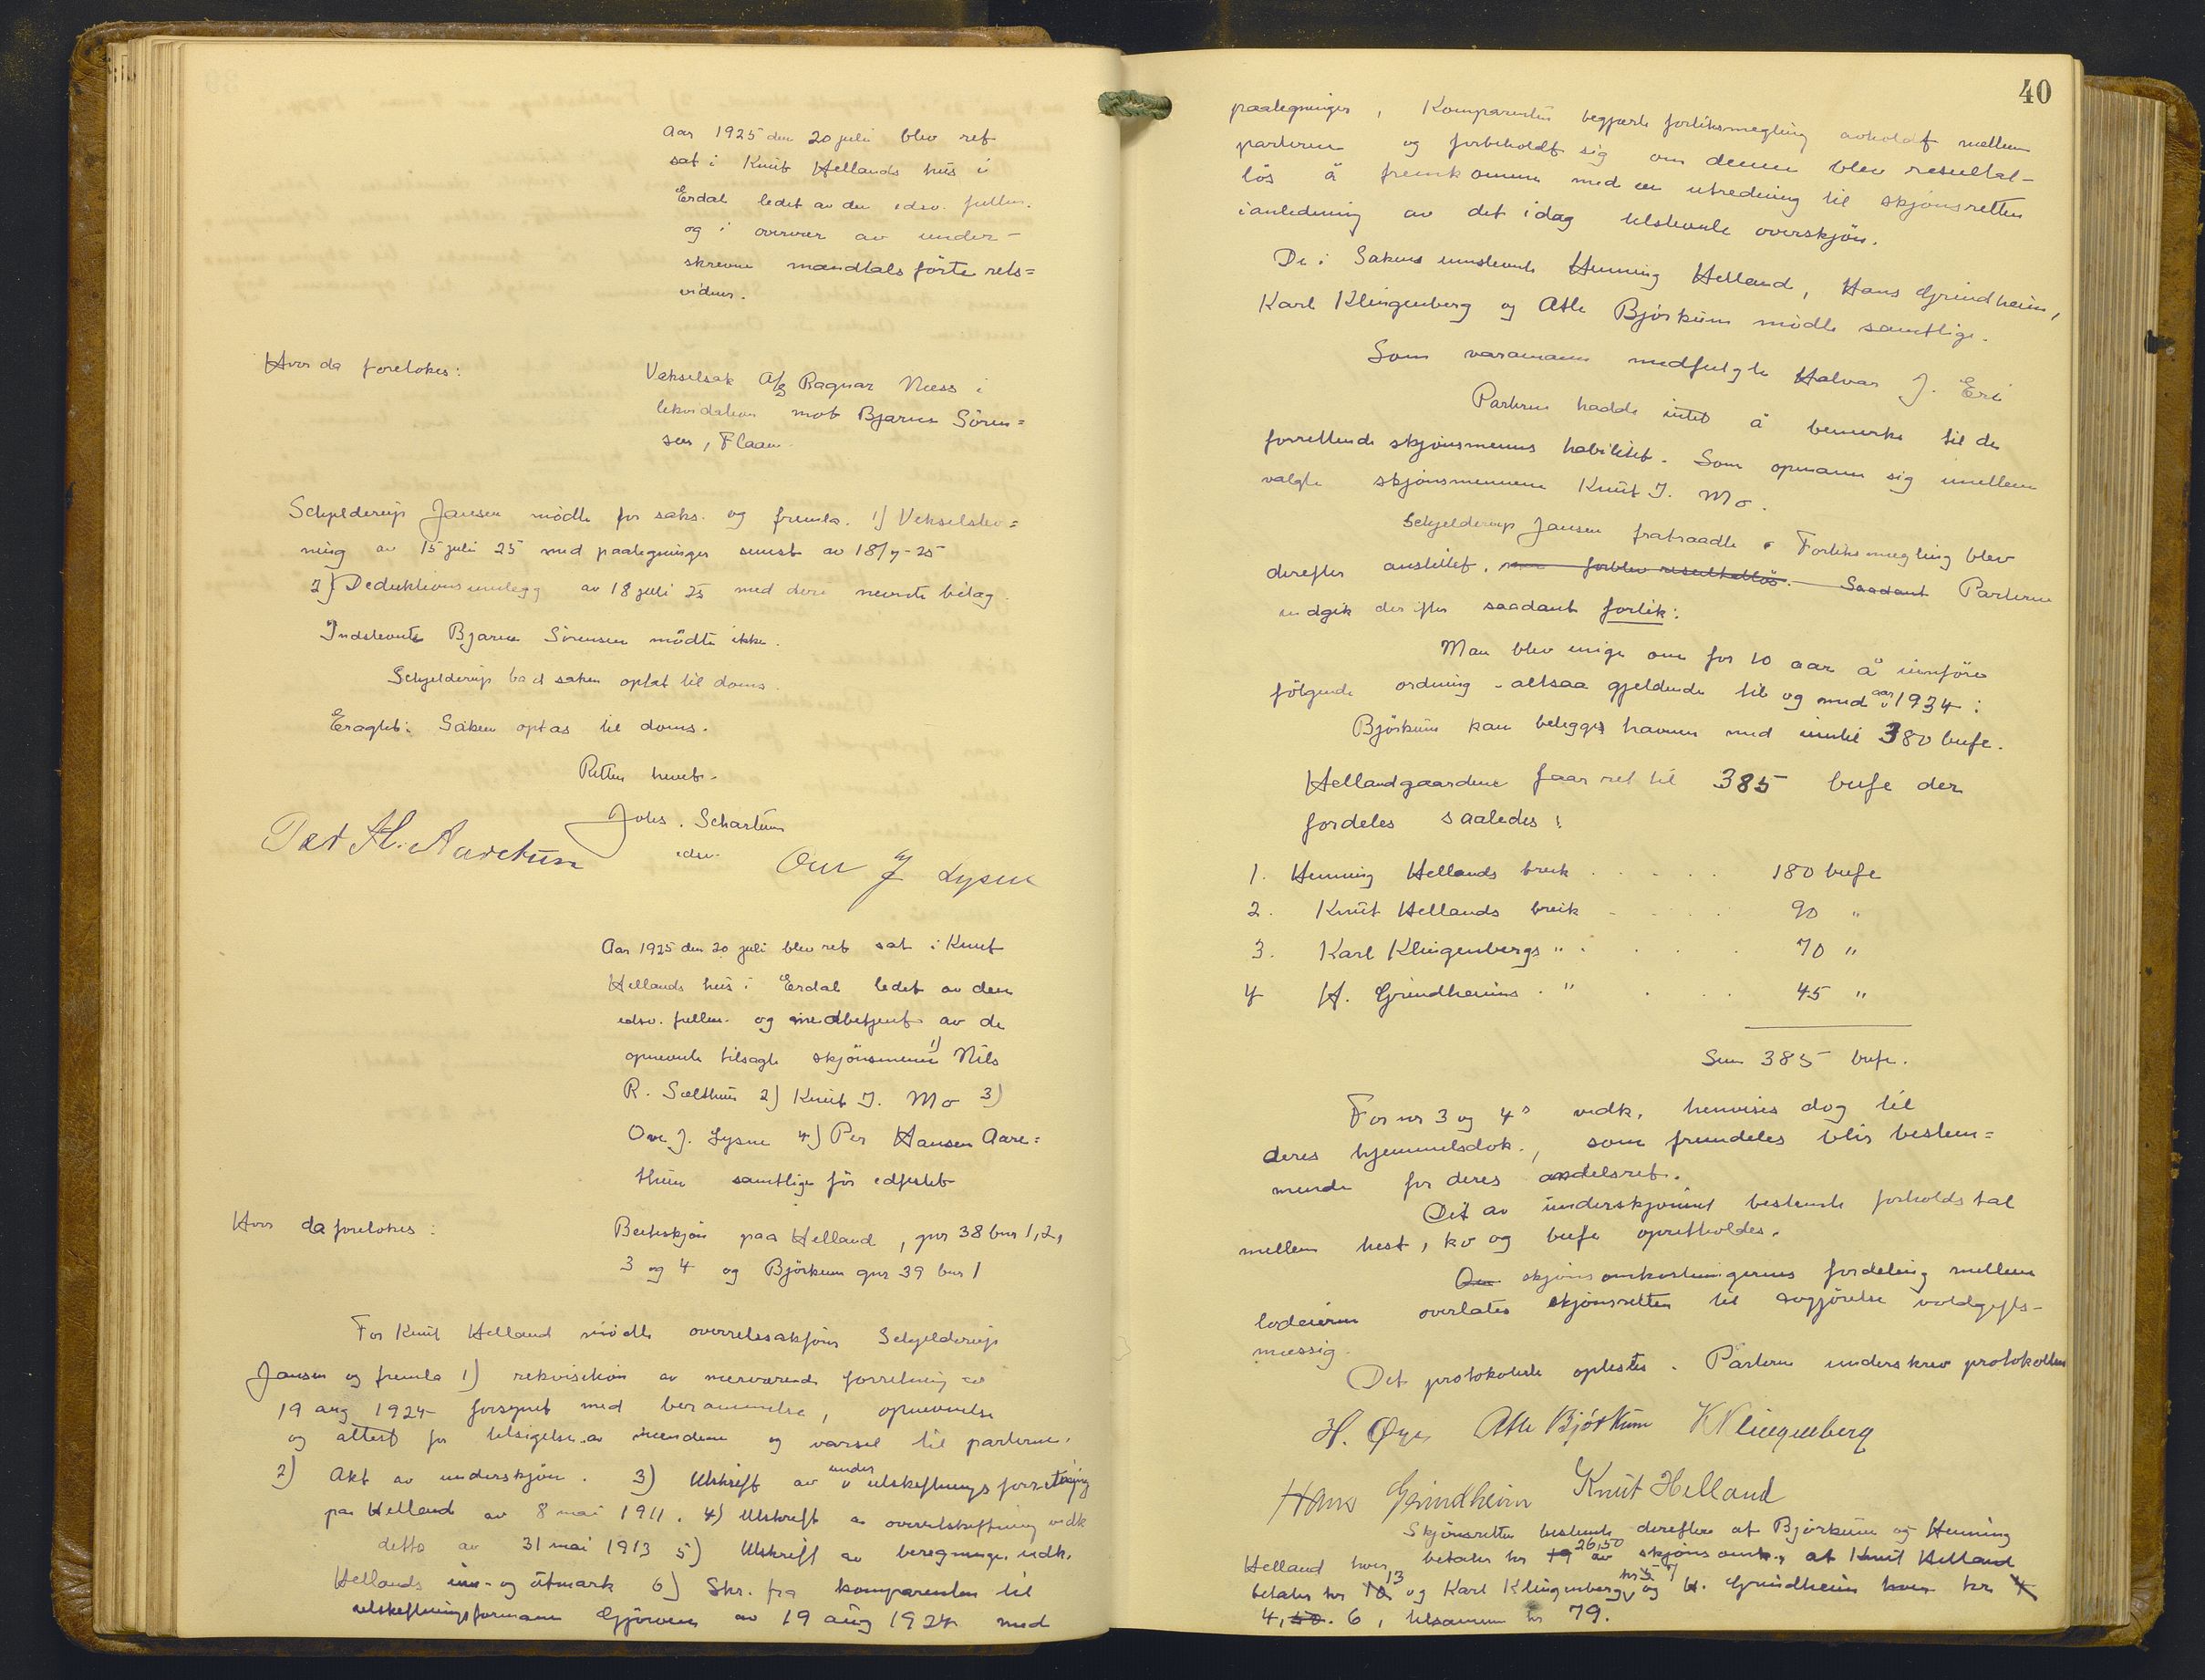 Aar 1925 den 20 juli blev ret
sat i Knut Hellands hus i
Erdal ledet av den edsv. fullm.
og i overvær av under-
skrevne mandtalsförte rets=
vidner.
Hvor da foretokes:
Vekselsak A/S Ragnar Næss i
likvidation mot Bjarne Sören=
sen, Flaam
Schjelderup Jansen mödte for saks. og fremla. 1) Vekselstev=
ning av 15 juli 25 med paategninger senest av 18/7-25
2) Deduktionsinnlegg av 18 juli 25 med deri nevnte bilag.
Indstevnte Bjarne Sörensen mödte ikke.
Schjelderup bad saken optat til doms.
Eragtet: Saken optas til doms.
Retten hevet.
Johs. Schartum
edsv.
Per H. Aarethun
Ove J Lysne
Aar 1925 den 20 juli blev ret sat i Knut
Hellands hus i Erdal ledet av den
edsv. fullm. og medbetjent av de
opnevnte tilsagte skjönsmenn 1) Nils
R. Sælthun 2) Knut J. Mo 3)
Ove J. Lysne 4) Per Hansen Aare=
thun samtlige för edfestet
Hvor da foretokes:
Beiteskjön paa Helland, gnr 38 bnr 1, 2,
3 og 4 og Björkum gnr 39 bnr 1
For Knut Helland mödte overretssakförer Schjelderup
Jansen og fremla 1) rekvisition av nærværende forretning av
19 aug 1924 forsynet med berammelse, opnevnelse
og attest for tilsigelse av mendene og varsel til parterne.
2) Akt av underskjön. 3) Utskrift av under utskiftningsforretning
paa Helland av 8 mai 1911. 4) Utskrift av overutskiftning vedk
detto av 31 mai 1913 5) Utskrift av beregninger vedk.
Hellands inn- og utmark 6) Skr. fra komparenten til
utskiftningsformann Gjörven av 19 aug 1924 med
40
paategninger, Komparenten begjærte forliksmegling avholdt mellem
parterne og forbeholdt sig om denne blev resultat-
lös å fremkomme med en utredning til skjönsretten
i anledning av det idag tilstevnte overskjön.
De i Sakens innstevnte Henning Helland, Hans Grindheim,
Karl Klingenberg og Atle Björkum mödte samtlige.
Som varamann medfulgte Halvar J. Eri
Parterne hadde intet å bemerke til de
forrettende skjönsmenns habilitet. Som opmann sig imellem
valgte skjönsmennene Knut J. Mo.
Schjelderup Jansen fratraadte. Forliksmegling blev
derefter anstillet, men forblev resultatlös. Saadant Parterne
indgik derefter saadant forlik:
Man blev enige om for 10 aar å innföre
fölgende ordning - altsaa gjeldende til og med aar 1934:
Björkum kan belegges havnen med inntil 380 bufe.
Hellandgaardene faar ret til 385 bufe der
fordeles saaledes:
1. Henning Hellands bruk . . . . . 180 bufe
2. Knut Hellands bruk . . . . 90 "
3. Karl Klingenbergs " . . . . 70 "
4 H. Grindheims " . . . 45 "
Sum 385 bufe.
For nr 3 og 4s vedk. henvises dog til
deres hjemmelsdok., som fremdeles blir bestem=
mende for deres andelsret.
Det av underskjönnet bestemte forholdstal
mellem hest, ko og bufe opretholdes.
Om skjönsomkostningernes fordeling mellem
lodeierne overlates skjönsretten til avgjörelse voldgifts-
mæssig.
Det protokolerte oplestes. Parterne underskrev protokollen
H. Øye Atle Björkum K Klingenberg
Hans Grindheim Knut Helland
Skjönsretten bestemte derefter at Björkum og Henning
Helland hver betaler kr 19 26,50 av skjönsomk., at Knut Helland
betaler kr 10 13 og Karl Klingenberg kr 7 og H. Grindheim hver kr 4
4,50. 6, tilsammen kr 79.